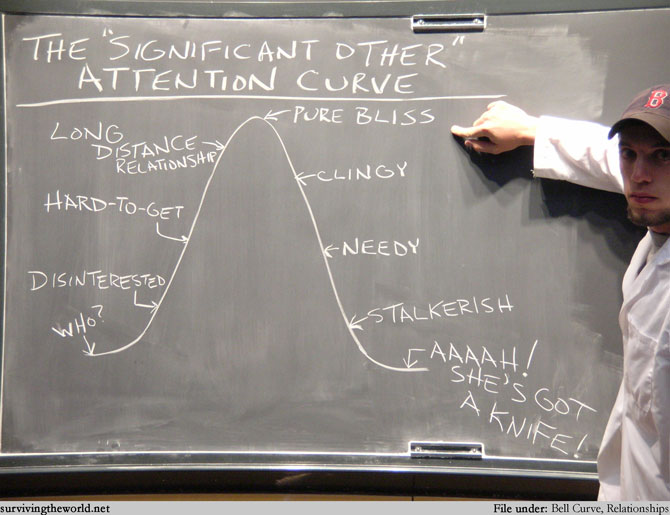 THE "SIGNIFICANT OTHER"
ATTENTION CURVE
PURE BLISS
LONG
DISTANCE
RELATIONSHIP
CLINGY
HARD-TO-GET
NEEDY
DISINTERESTED
STALKERISH
WHO?
AAAAH!
SHE'S GOT
A KNIFE!
B
survivingtheworld.net
File under: Bell Curve, Relationships